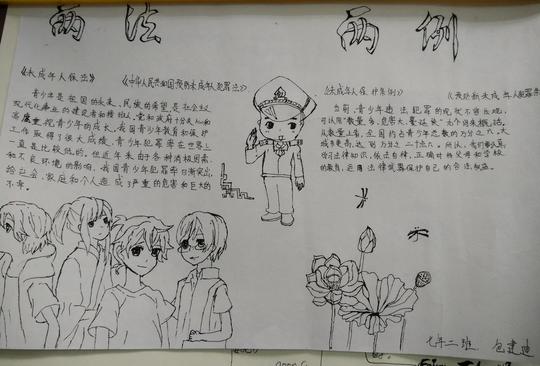 两法
两例
《未成年人保法》
《中华人民共和国预防未成年人犯罪法》
青少年是祖国的未来、民族的希望,是社会主义
现代化事业的建设者和接班人,党和政府十分关心和
高度重视青少年的成长,我国青少年教育和保护
工作取得了很大成绩,青少年犯罪率在世界上
一直是比较低的。但近年来由于各种消极因素
和不良环境的影响,我国青少年犯罪率日渐突出,
给社会、家庭和个人造成了严重的危害和巨大的
不幸。
《未成年人保护条例》
《预防新未成年人犯罪
当前,青少年违法犯罪的现状不容乐观,
可以用“数量多、危害大、蔓延快”九个字来概括。
从数量上看,全国约占青少年总数的万分之八,大
城市更高,达到万分之二十六。所以,我们要认真
学习法律知识,依法自律,正确对待父母和学校
的教育,运用法律武器保护自己的合法权益。
七年二班 包建迪